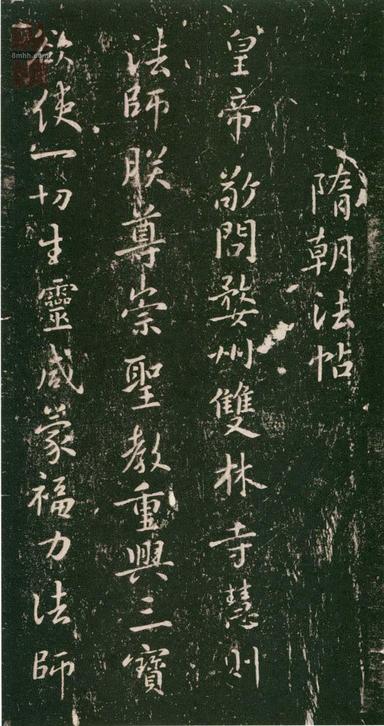 隋朝法帖
皇帝敬問婺州雙林寺慧則
法師朕尊崇聖教重興三寶
欲使一切生靈咸蒙福力法師
8mhh.com